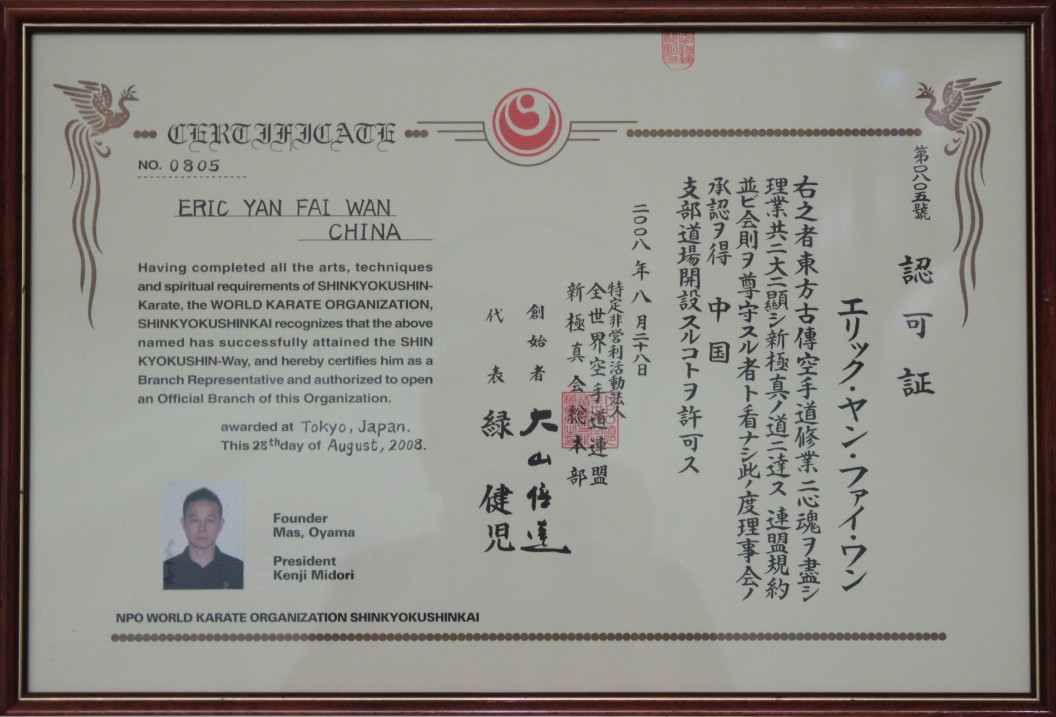 CERTIFICATE
NO. 0805
ERIC YAN FAI WAN
CHINA
Having completed all the arts, techniques
and spiritual requirements of SHINKYOKUSHIN-
Karate, the WORLD KARATE ORGANIZATION,
SHINKYOKUSHINKAI recognizes that the above
named has successfully attained the SHIN
KYOKUSHIN-Way, and hereby certifies him as a
Branch Representative and authorized to open
an Official Branch of this Organization.
awarded at Tokyo, Japan.
This 28th day of August, 2008.
Founder
Mas, Oyama
President
Kenji Midori
NPO WORLD KARATE ORGANIZATION SHINKYOKUSHINKAI
第〇八〇五號
認可証
エリック・ヤン・ファイ・ワン
右之者東方古傳空手道修業ニ心魂ヲ盡シ
理業共ニ大ニ顯シ新極真ノ道ニ達ス 連盟規約
並ビ会則ヲ尊守スル者ト看ナシ此ノ度理事会ノ
承認ヲ得 中国
支部道場開設スルコトヲ許可ス
二〇〇八年八月二十八日
特定非営利活動法人
全世界空手道連盟
新極真会総本部
創始者 大山倍達
代表 緑健児